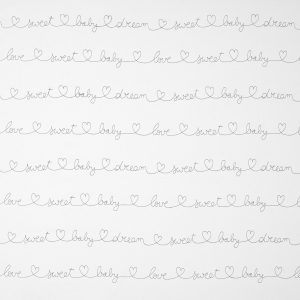 sweet ♡ baby ♡ dream ♡ sweet ♡ baby
love ♡ sweet ♡ baby ♡ love ♡ sweet
sweet ♡ baby ♡ dream ♡ sweet ♡ baby
love ♡ sweet ♡ baby ♡ love ♡ sweet
sweet ♡ baby ♡ dream ♡ sweet ♡ baby
love ♡ sweet ♡ baby ♡ love ♡ sweet
sweet ♡ baby ♡ dream ♡ sweet ♡ baby
love ♡ sweet ♡ baby ♡ love ♡ sweet